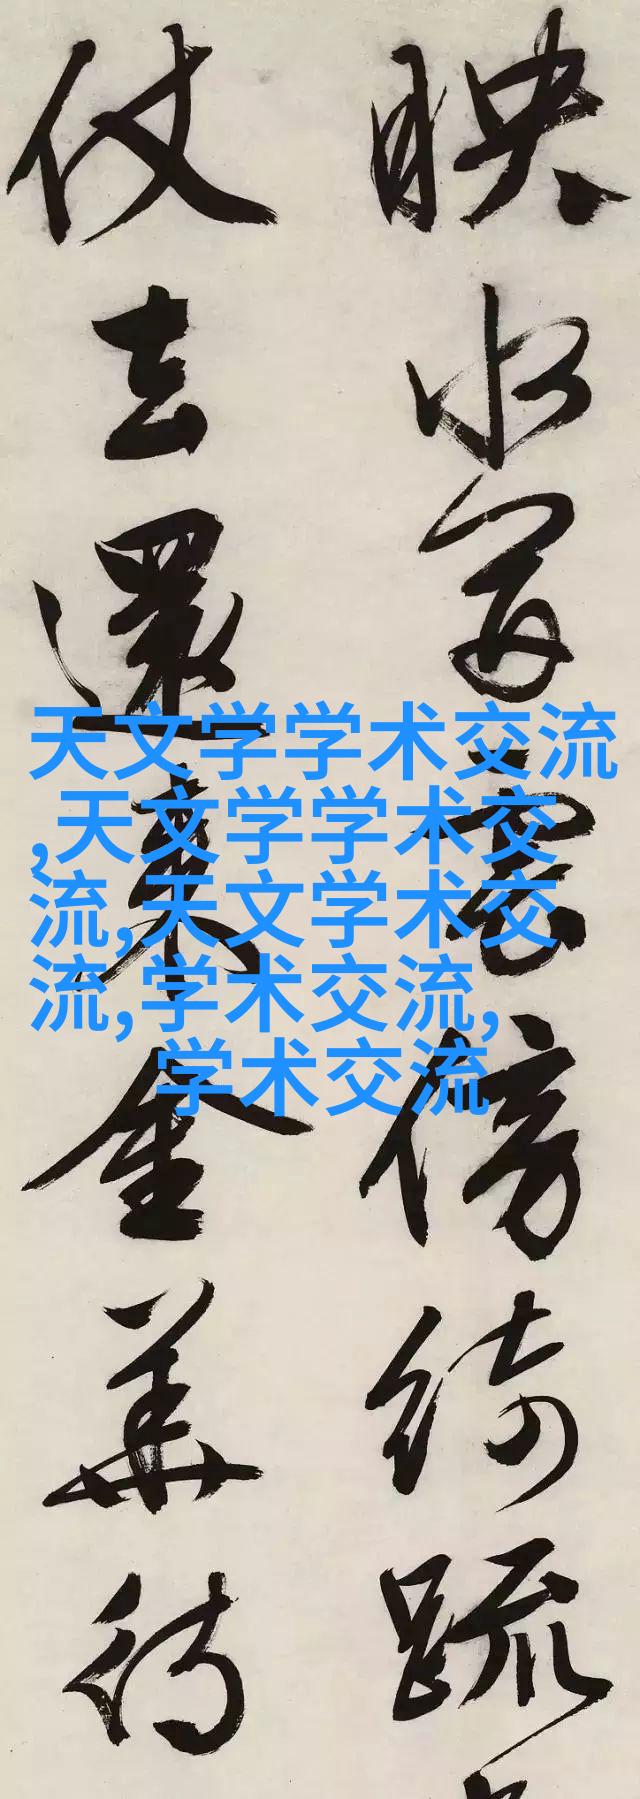 映水雲傍綺疏
仗去還來金華
天文学学术交流
,天文学学术交
流,天文学术交
流,学术交流,
学术交流